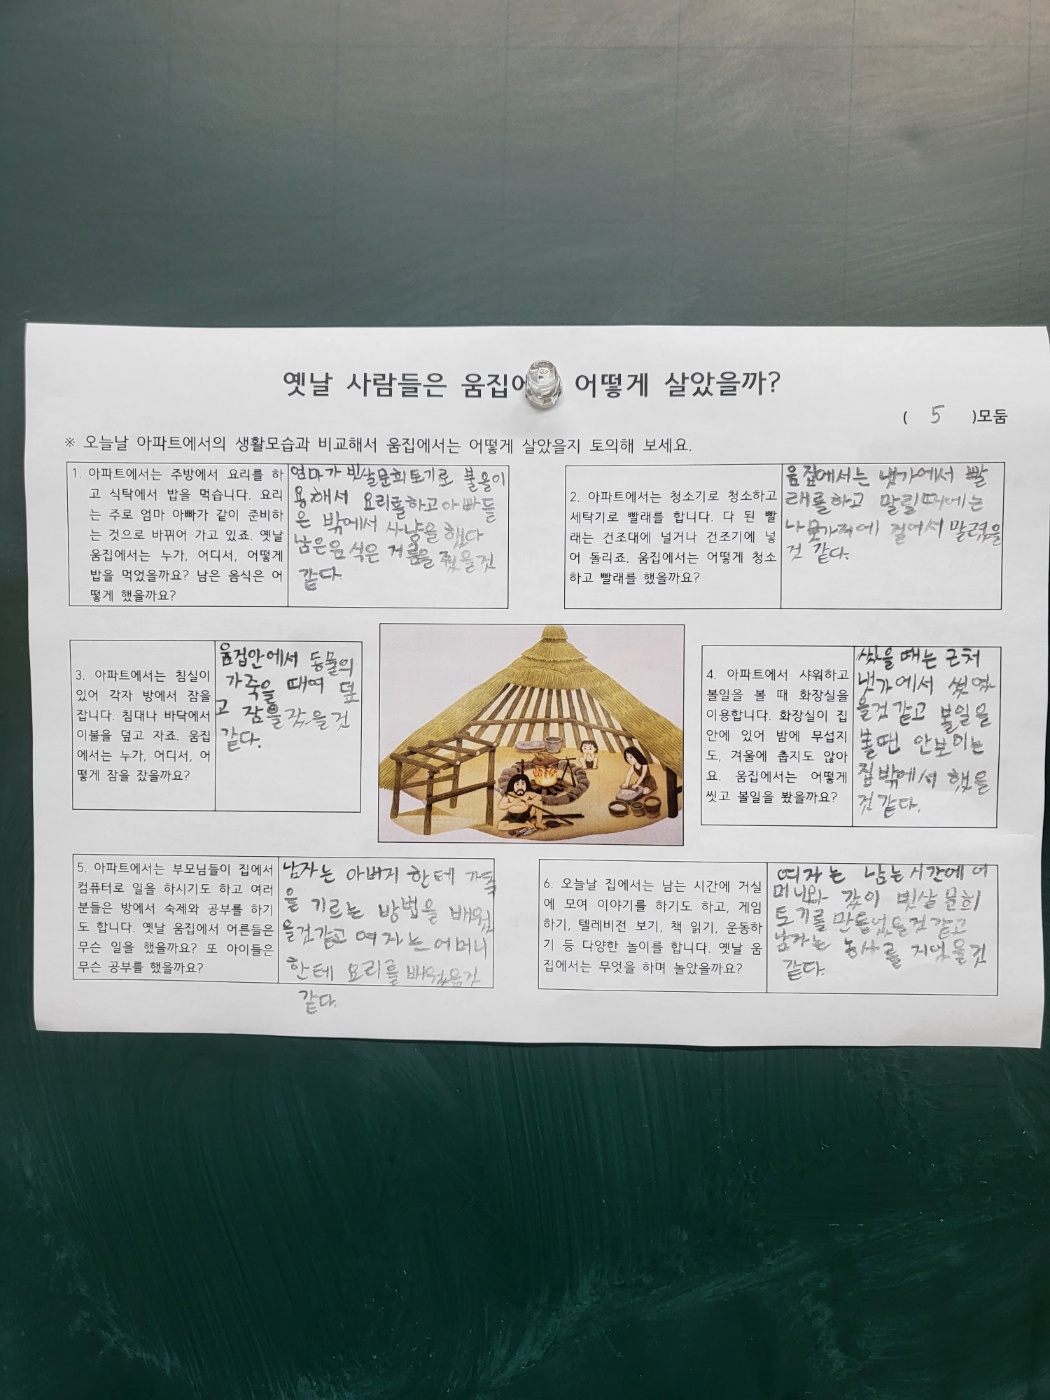 옛날 사람들은 움집에 어떻게 살았을까?
( 5 )모둠
※ 오늘날 아파트에서의 생활모습과 비교해서 움집에서는 어떻게 살았을지 토의해 보세요.
1. 아파트에서는 주방에서 요리를 하
고 식탁에서 밥을 먹습니다. 요리
는 주로 엄마 아빠가 같이 준비하
는 것으로 바뀌어 가고 있죠. 옛날
움집에서는 누가, 어디서, 어떻게
밥을 먹었을까요? 남은 음식은 어
떻게 했을까요?
엄마가 빗살문희토기로 불을이
용해서 요리를하고아빠들
은 밖에서 사냥을 했다
남은음식은 거름을 줬을것
같다
2. 아파트에서는 청소기로 청소하고
세탁기로 빨래를 합니다. 다 된 빨
래는 건조대에 널거나 건조기에 넣
어 돌리죠. 움집에서는 어떻게 청소
하고 빨래를 했을까요?
움집에서는 냇가에서 빨
래를하고 말릴때에는
나뭇가지에 걸어서 말렸을
것 같다.
3. 아파트에서는 침실이
있어 각자 방에서 잠을
잡니다. 침대나 바닥에서
이불을 덮고 자죠. 움집
에서는 누가, 어디서, 어
떻게 잠을 잤을까요?
움집안에서 동물의
가죽을 때여 덮
고 잠을잤을것
같다.
4. 아파트에서 샤워하고
볼일을 볼 때 화장실을
이용합니다. 화장실이 집
안에 있어 밤에 무섭지
도, 겨울에 춥지도 않아
요. 움집에서는 어떻게
씻고 볼일을 봤을까요?
씻을때는 근처
냇가에서 씻였
을것같고 볼일을
볼땐 안보이는
집밖에서 했을
것같다.
5. 아파트에서는 부모님들이 집에서
컴퓨터로 일을 하시기도 하고 여러
분들은 방에서 숙제와 공부를 하기
도 합니다. 옛날 움집에서 어른들은
무슨 일을 했을까요? 또 아이들은
무슨 공부를 했을까요?
남자는 아버지 한테 가축
을 기르는 방법을 배웠
을것같고 여자는어머니
한테 요리를 배웠을것
같다.
6. 오늘날 집에서는 남는 시간에 거실
에 모여 이야기를 하기도 하고, 게임
하기, 텔레비전 보기, 책 읽기, 운동하
기 등 다양한 놀이를 합니다. 옛날 움
집에서는 무엇을 하며 놀았을까요?
여자는 남는시간에 어
머니와 같이 빗살문희
토기를 만들었을것같고
남자는 농사를 지었을것
같다.